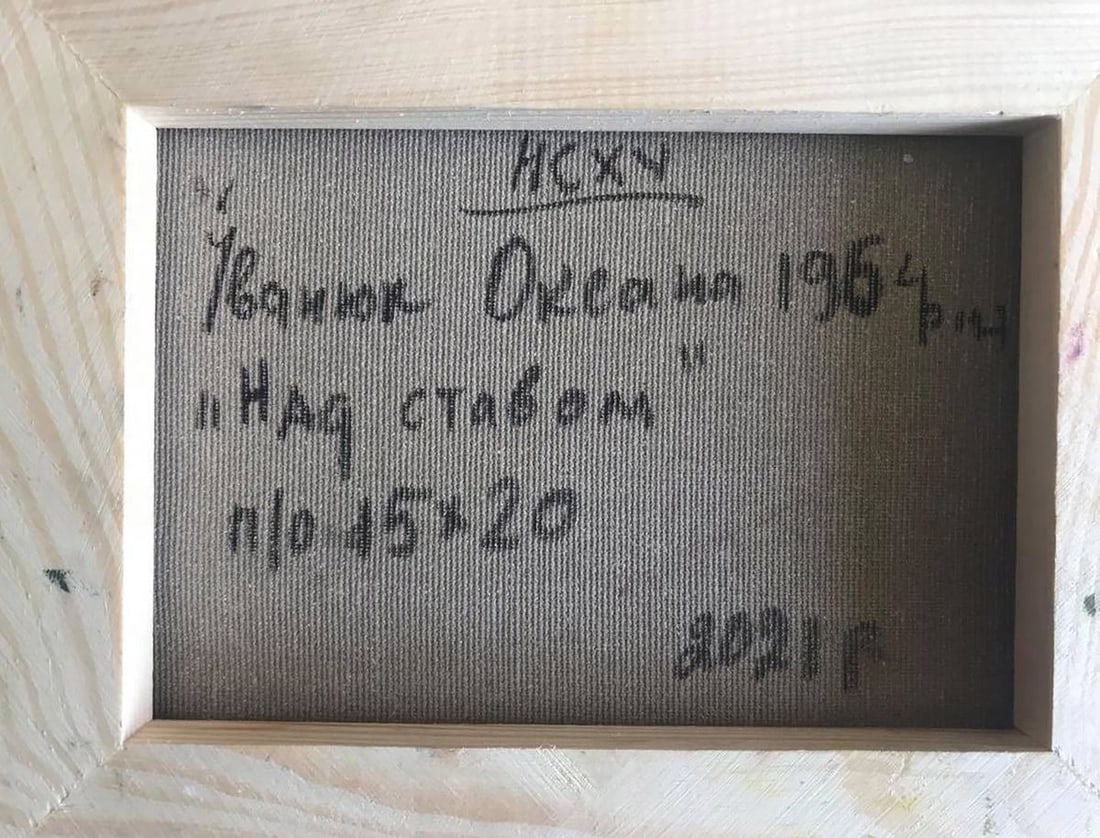 НСХУ
Іванюк Оксана 1964 р.н.
"Над ставом"
п/о 15х20
2021 р